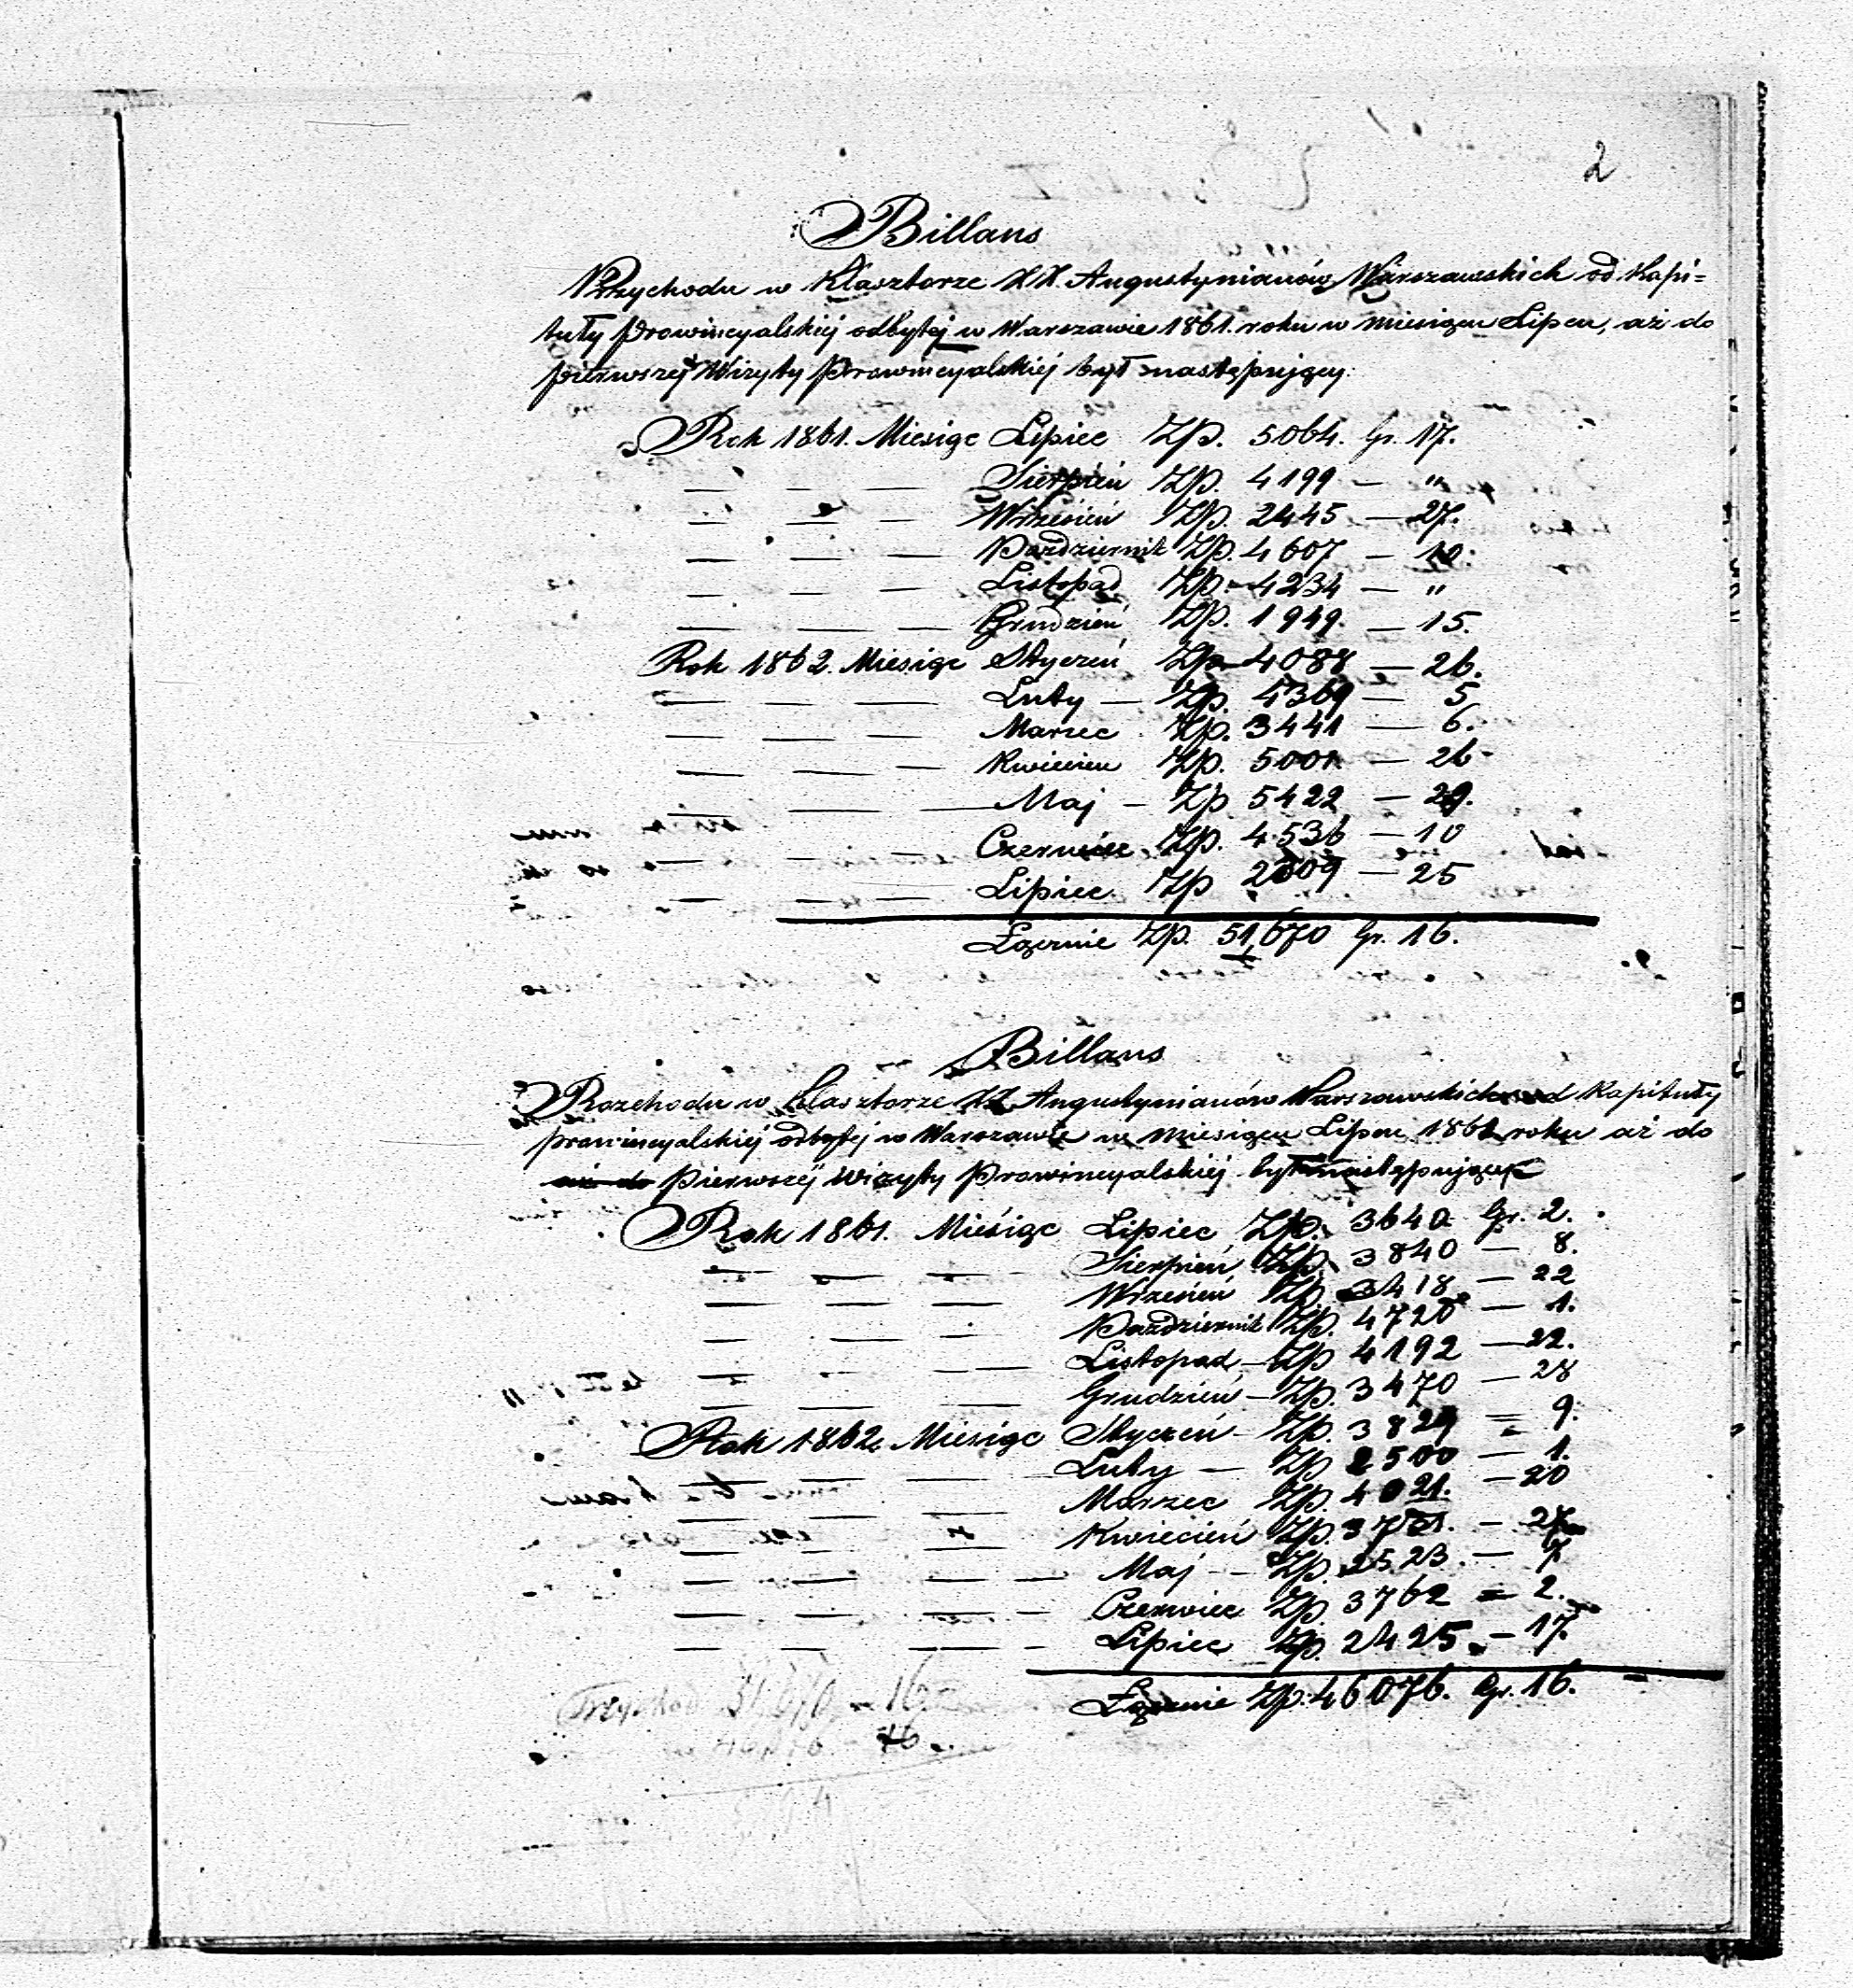 2
Billans
Przychodu w Klasztorze XX. Augustynianów Warszawskich od Kapi=
tuły Prowincyalskiéj odbytéj w Warszawie 1861. roku w miesiącu Lipcu, aż do
pierwszéj Wizyty Prowincyalskiéj był następujący:
Rok 1861. Miesiąc Lipiec Zp. 5064. Gr. 17.
— — — Sierpień Zp. 4199 — "
— — — Wrzesień Zp. 2445 — 27.
— — — Październik Zp. 4607 — 10.
— — — Listopad Zp. 4234 — "
— — — Grudzień Zp. 1949. — 15.
Rok 1862. Miesiąc Styczeń Zp. 4088 — 26.
— — — Luty — Zp. 4369 — 5
— — — Marzec Zp. 3441 — 6.
— — — Kwiecien Zp. 5001 — 26
— — Maj — Zp 5422 — 29.
— — — Czerwiec Zp. 4536 — 10
— — — Lipiec Zp — 25
Łącznie Zp. 51,670 Gr. 16.
Billans
Rozchodu w Klasztorze XX Augustynianów Warszawskich od Kapituły
prowincyalskiéj odbytéj w Warszawie w miesiącu Lipcu 1861 roku aż do
aż do pierwszéj wizyty Prowincyalskiéj był następujący
Rok 1861. Miesiąc Lipiec Zp. 3640 Gr. 2.
— — — Sierpień Zp. 3840 — 8.
— — — Wrzesień Zp. 3418 — 22
— — — Październik Zp. 4720 — 1.
— — — Listopad — Zp 4192 — 22.
— — — Grudzień — Zp. 3470 — 28
Rok 1862 Miesiąc Styczeń — Zp. 3829 — 9.
— — — Luty — Zp 2500 — 1.
— — — Marzec Zp. 4021. — 20
— — — Kwiecień Zp. 3731. — 27
— — — Maj — Zp. 2523. — 7
— — — Czerwiec Zp. 3762 = 2.
— — — Lipiec Zp. 2425. — 17.
Łącznie Zp. 46076. Gr. 16.
Przychod 51,670 — 16
46076 — 16